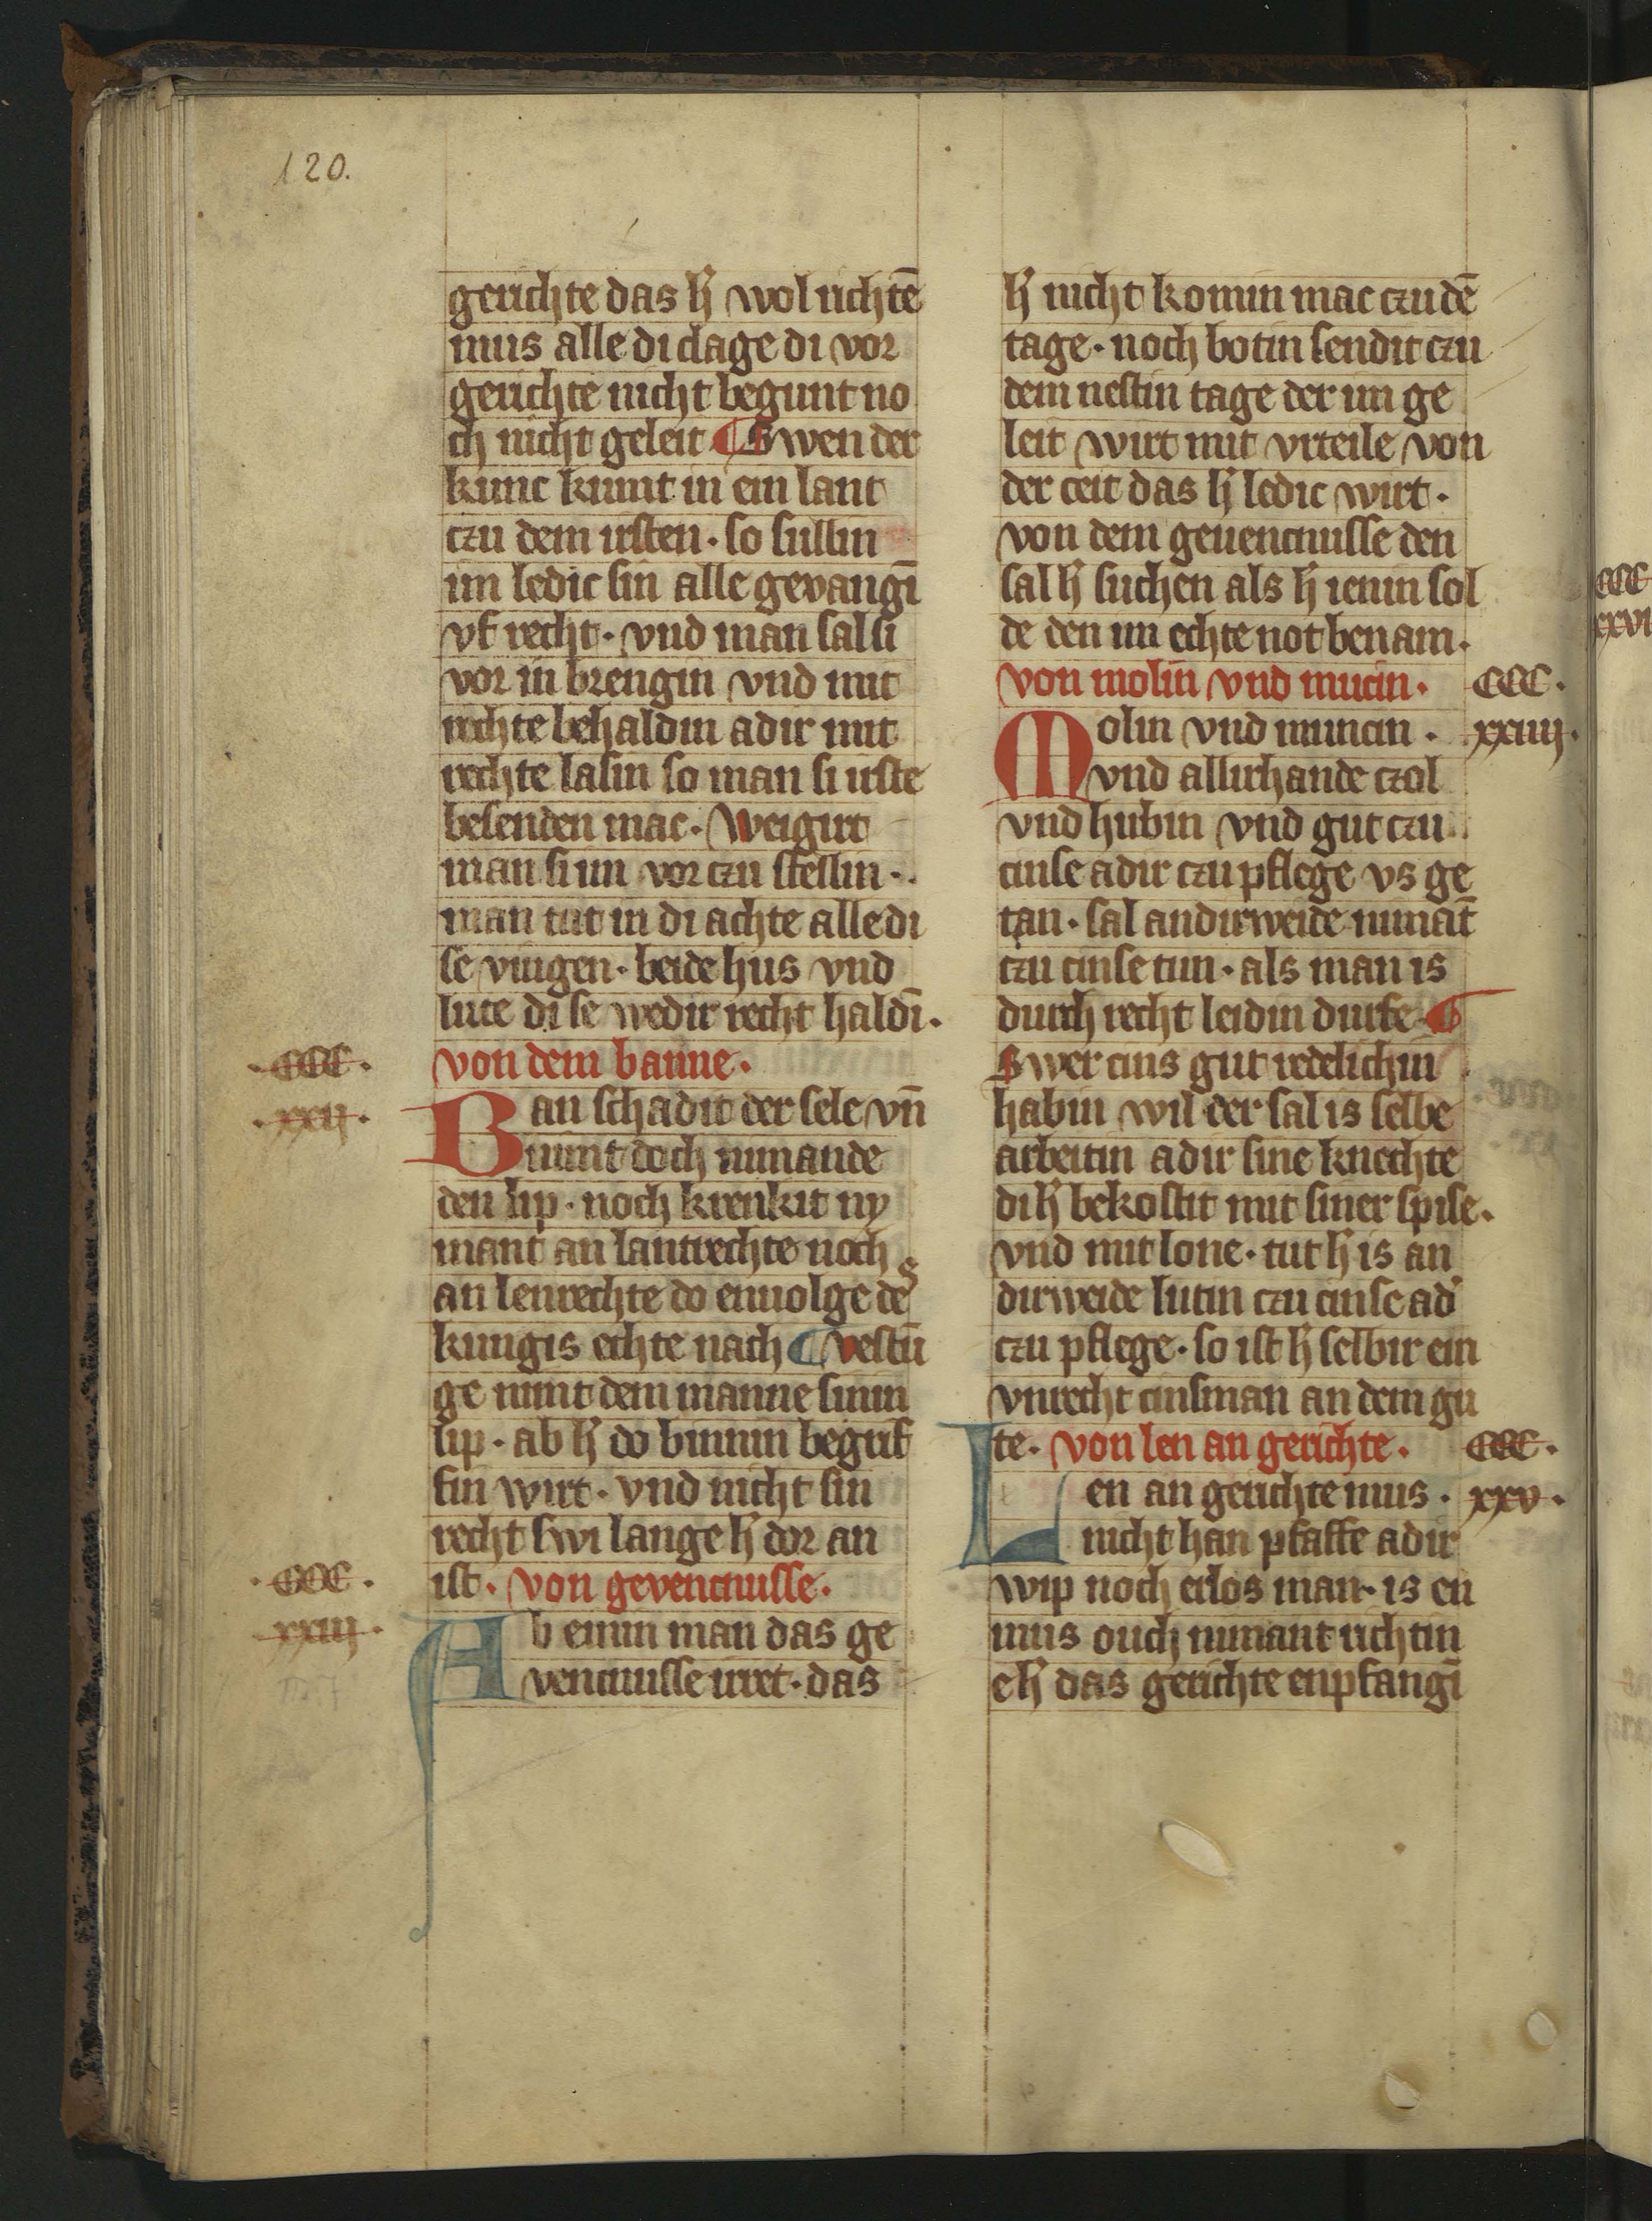 120.
gerichte das h̄ wol richtē
mus alle di clage di vor
gerichte nicht begunt no
ch nicht geleit ¶ Swen der
kunc kumt in ein lant
czu dem irsten · so sullin
im ledic sin alle gevangī
vf recht · vnd man sal si
vor in brengin vnd mit
rechte behaldin adir mit
rechte lasin so man si irste
besenden mac · Weigirt
man si im vor czu stellin ·
man tut in di achte alle di
se viugen · beide hus vnd
lute di se wedir recht haldī ·
· CCC ·
· xxij ·
von dem banne ·
Ban schadit der sele vn̄
nimt doch nimande
den lip · noch krenkit ny
mant an lantrechte noch
an lenrechte do enuolge des
kungis echte nach ¶ vestū
ge nimt dem manne sinin
lip · ab h̄ do binnin begrif
fin wirt · vnd nicht sin
recht swi lange h̄ dor an
ist · von gevencnisse ·
· CCC ·
xxiij ·
Ab einin man das ge
vencnisse irret · das
h̄ nicht komin mac czu dē
tage · noch botin sendit czu
dem nestin tage der im ge
leit wirt mit vrteile von
der ceit das h̄ ledic wirt ·
von dem geuencnisse den
sal h̄ suchen als h̄ ienin sol
de den im echte not benam ·
von molin vnd mucin ·
CCC ·
xxiiij ·
Molin vnd muncin ·
vnd allirhande czol
vnd hubin vnd gut czu
cinse adir czu pflege vs ge
tan · sal andirweide nimāt
czu cinse tun · als man is
durch recht leidin durfe · ¶
Swer cins gut redelichin
habin wil der sal is selbe
arbeitin adir sine knechte
di h̄ bekostit mit siner spise ·
vnd mit lone · tut h̄ is an
dirweide lutin czu cinse ad'
czu pflege · so ist h̄ selbir ein
vnrecht cinsman an dem gu
te · von len an gerichte ·
CCC ·
xxv ·
Len an gerichte mus ·
nicht han pfaffe adir
wip noch erlos man · is en
mus ouch nimant richtin
e h̄ das gerichte enpfangī
CCC
xxvi